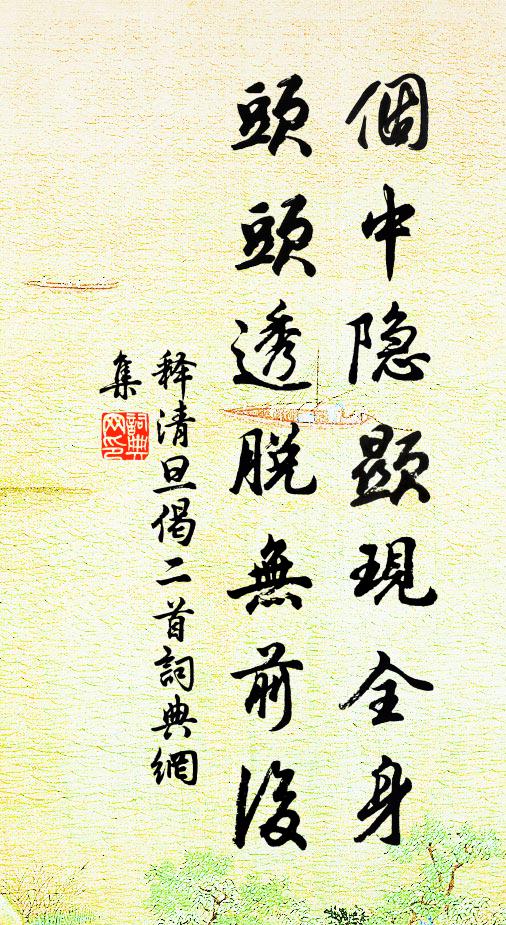 個中隐顯現全身
頭頭透脱無前後
释清旦偈二首詞典網
集
詞典網印